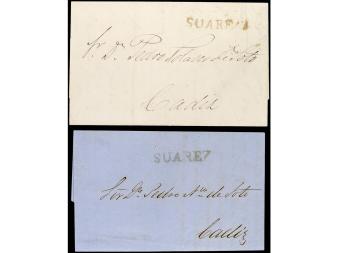 SUAREZ
Sr. Dn. Pedro de Soto
Cádiz
SUAREZ
Sor. Dn. Pedro Nn. de Soto
Cadiz